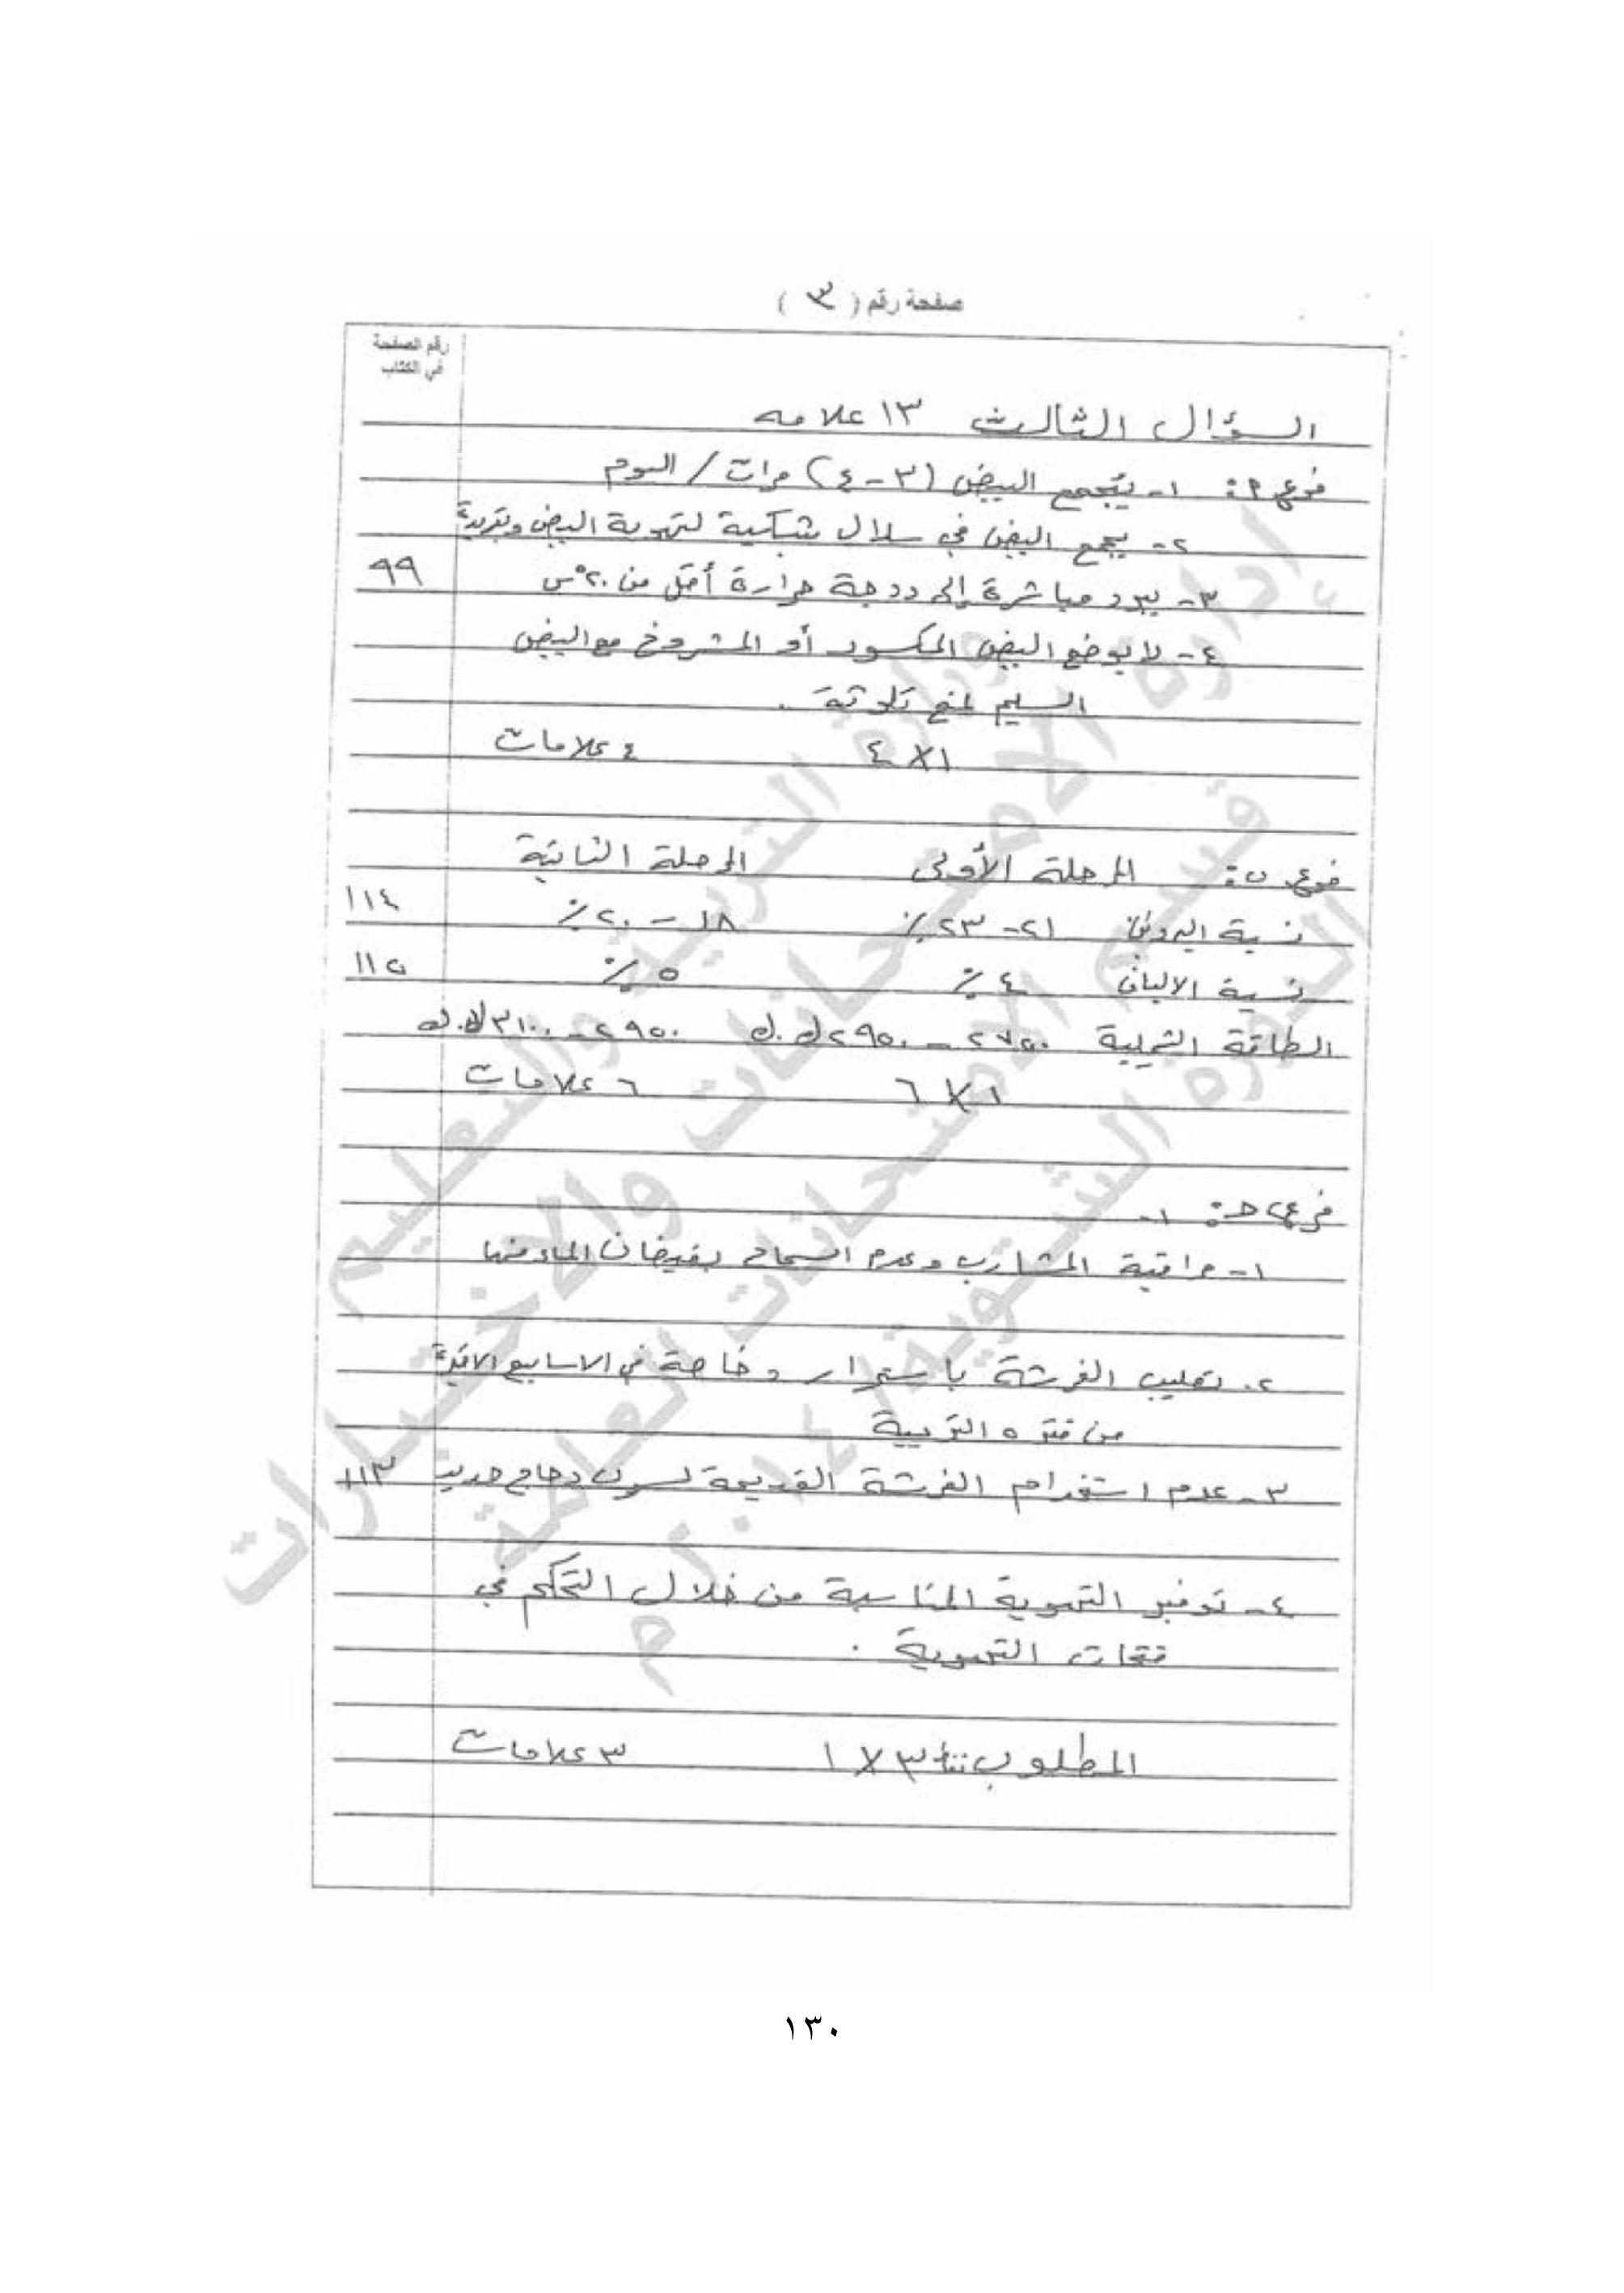 صفحة رقم ( ٣ )
رقم الصفحة
في الكتاب
السؤال الثالث ١٣ علامه
فرع أ: ١- يُجمع البيض (٣-٤) مرات / اليوم
٢- يجمع البيض في سلال شبكية لتهوية البيض وتبريدة
٣- يبرد مباشرة إلى درجة حرارة أقل من ٢٠°س
٩٩
٤- لا يوضع البيض المكسور أو المشروخ مع البيض
السليم لمنع تلوثة .
١×٤ ٤ علامات
فرع ب: المرحلة الأولى المرحلة الثانية
نسبة البروتين ٢١-٢٣٪ ١٨-٢٠٪
١١٤
نسبة الالياف ٤٪ ٥٪
١١٥
الطاقة التمثيلية ٢٧٥٠-٢٩٥٠ ك.ك ٢٩٥٠-٣١٠٠ ك.ك
١×٦ ٦ علامات
فرع ج: ١-
١- مراقبة المشارب وعدم السماح بفيضان الماء منها
٢- تقليب الفرشة باستمرار وخاصة في الاسابيع الاخيرة
من فتره التربية
٣- عدم استخدام الفرشة القديمة لسرب دجاج جديد
١١٣
٤- توفير التهوية المناسبة من خلال التحكم في
فتحات التهوية .
المطلوب ٣×١ ٣ علامات
وزارة التربية والتعليم
إدارة الامتحانات والاختبارات
قسم الامتحانات العامة
١٣٠